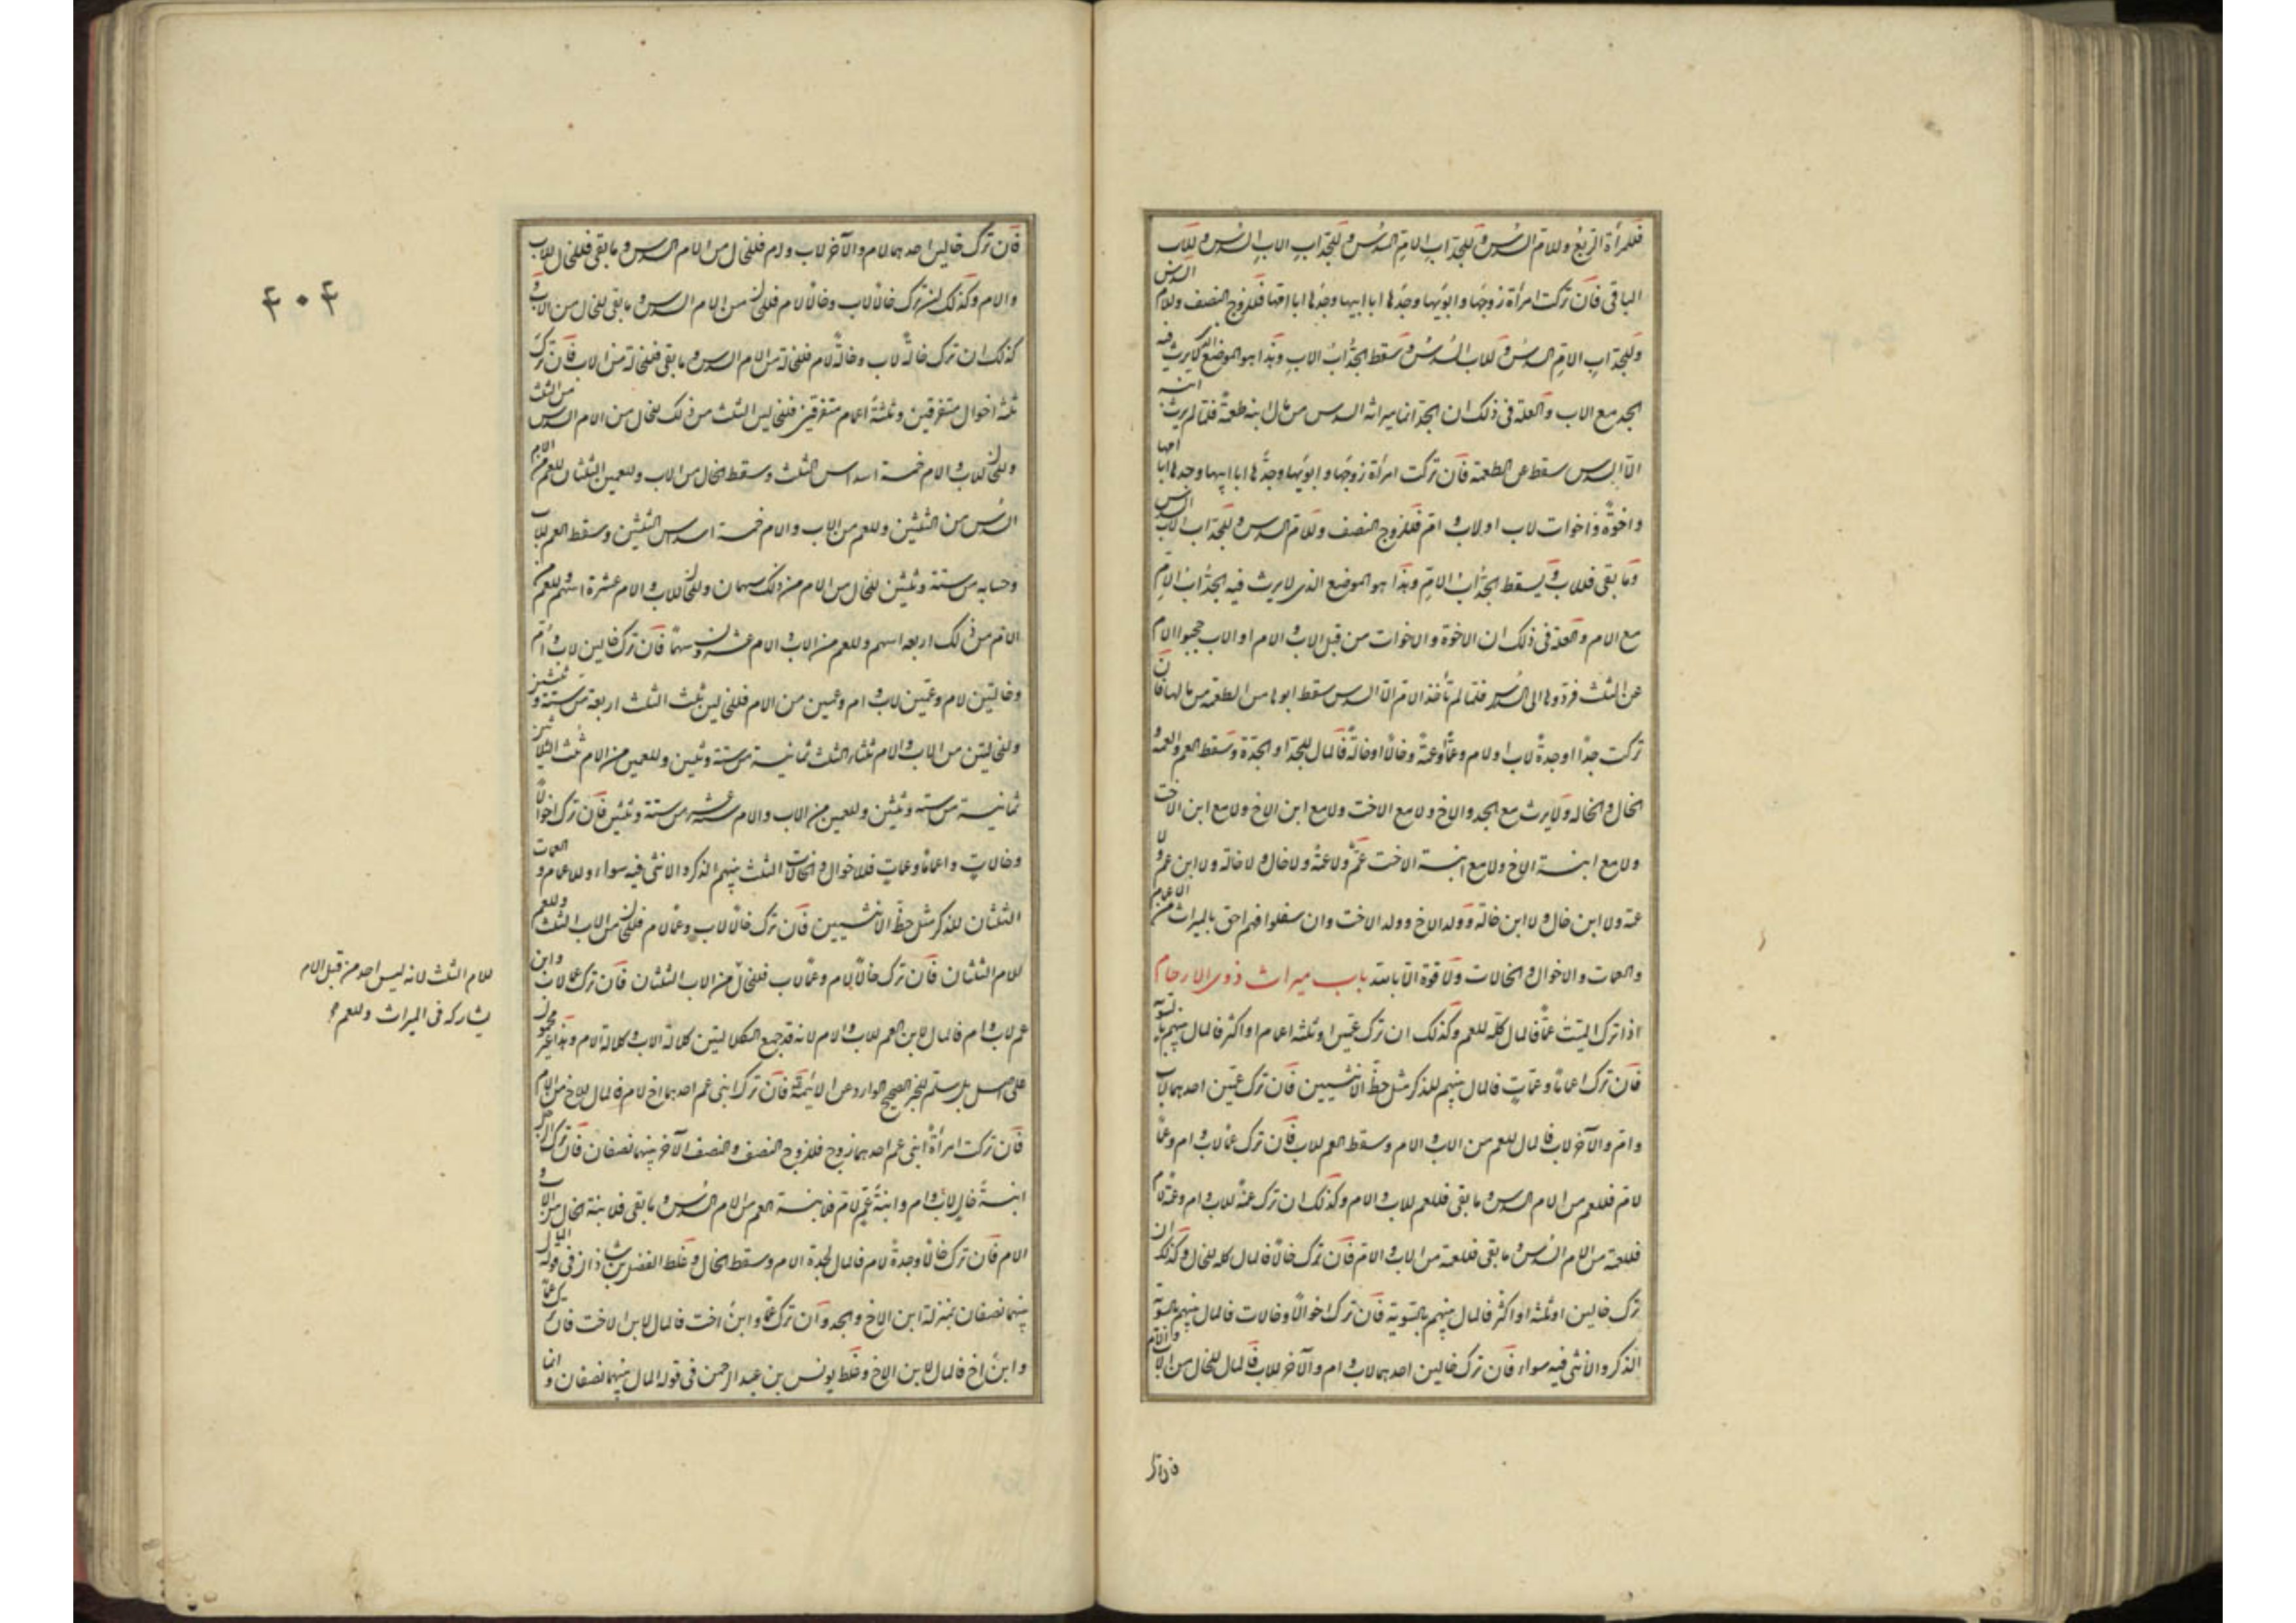 فللمرأة الربع وللام السدس وللجد اب الام السدس وللجد اب الاب السدس وللاب
الباقى فان تركت امرأة زوجها وابويها وجدها ابا ابيها وجدها ابا امها فللزوج النصف وللام السدس
وللجد اب الام السدس وللاب السدس وسقط الجد اب الاب وهذا هو الموضع الذى لا يرث فيه
الجد مع الاب والعلة فى ذلك ان الجد انما ميراثه السدس من مال ابنه طعمة فلما لم يرث ابنه
الا السدس سقط عن الطعمة فان تركت امرأة زوجها وابويها وجدها ابا ابيها وجدها ابا امها
واخوة واخوات لاب او لاب وام فللزوج النصف وللام السدس وللجد اب الاب السدس
وما بقى فللاب ويسقط الجد اب الام وهذا هو الموضع الذى لا يرث فيه الجد اب الام
مع الام والعلة فى ذلك ان الاخوة والاخوات من قبل الاب والام او الاب حجبوا الام
عن الثلث فردوها الى السدس فلما لم تأخذ الام الا السدس سقط ابوها من الطعمة من مالها فان
تركت جدا او جدة لاب او لام وعما او عمة وخالا او خالة فالمال للجد او الجدة وسقط العم والعمة و
الخال والخاله ولا يرث مع الجد والاخ ولا مع الاخت ولا مع ابن الاخ ولا مع ابن الاخت
ولا مع ابنة الاخ ولا مع ابنة الاخت عم ولا عمة ولا خال ولا خالة ولا ابن عم ولا
عمة ولا ابن خال ولا ابن خالة وولد الاخ وولد الاخت وان سفلوا فهم احق بالميراث من الاعمام
والعمات والاخوال والخالات ولا قوة الا بالله باب ميراث ذوى الارحام
اذا ترك الميت عما فالمال كله للعم وكذلك ان ترك عمين او ثلثه اعمام او اكثر فالمال بينهم بالسوية
فان ترك اعماما وعمات فالمال بينهم للذكر مثل حظ الانثيين فان ترك عمين احدهما لاب
وام والآخر لاب فالمال للعم من الاب والام وسقط العم للاب فان ترك عما لاب وام وعما
لام فللعم من الام السدس وما بقى فللعم للاب والام وكذلك ان ترك عمة للاب وام وعمة لام
فللعمة من الام السدس وما بقى فللعمة من الاب والام فان ترك خالا فالمال كله للخال وكذلك ان
ترك خالين او ثلثه او اكثر فالمال بينهم بالسوية فان ترك اخوالا وخالات فالمال بينهم بالسوية
الذكر والانثى فيه سواء فان ترك خالين احدهما لاب وام والآخر للاب فالمال للخال من الاب والام
فان ترك
۴۰۴
فان ترك خالين احدهما لام والآخر لاب وام فللخال من الام السدس وما بقى فللخال للاب
والام وكذلك ان ترك خالا لاب وخالا لام فللخال من الام السدس وما بقى للخال من الاب و
كذلك ان ترك خالة لاب وخالة لام فللخالة من الام السدس وما بقى فللخالة من الاب فان ترك
ثلثة اخوال متفرقين وثلثة اعمام متفرقين فللخالين الثلث من ذلك للخال من الام السدس من الثلث
وللخال للاب والام خمسة اسداس الثلث وسقط الخال من الاب وللعمين الثلثان للعم من الام
السدس من الثلثين وللعم من الاب والام خمسة اسداس الثلثين وسقط العم للاب
وحسابه من ستة وثلثين للخال من الام من ذلك سهمان وللخال للاب والام عشرة اسهم وللعم من
الام من ذلك اربعة اسهم وللعم من الاب والام عشرون سهما فان ترك خالين لاب وام
وخالتين لام وعمين لاب وام وعمين من الام فللخالين ثلث الثلث اربعة من ستة وثلثين
وللخالتين من الاب والام ثلثا الثلث ثمانية من ستة وثلثين وللعمين من الام ثلث الثلثين
ثمانية من ستة وثلثين وللعمين من الاب والام ستة عشر من ستة وثلثين فان ترك اخوالا
وخالات واعماما وعمات فللاخوال والخالات الثلث بينهم الذكر والانثى فيه سواء وللاعمام والعمات
الثلثان للذكر مثل حظ الانثيين فان ترك خالا لاب وعما لام فللخال من الاب الثلث وللعم
للام الثلثان فان ترك خالا لام وعما لاب فللخال من الاب الثلثان فان ترك عما لاب وابن
عم لاب وام فالمال لابن العم للاب والام لانه قد جمع الكلالتين كلالة الاب وكلالة الام وهذا غير محمول
على اصل بل مسلم للخبر الصحيح الوارد عن الائمة فان ترك ابنى عم احدهما اخ لام فالمال للاخ من الام
فان تركت امرأة ابنى عم احدهما زوج فللزوج النصف والنصف الآخر بينهما نصفان فان ترك الرجل
ابنة خال لاب وام وابنة عم لام فلابنة العم من الام السدس وما بقى فلابنة الخال من الاب و
الام فان ترك خالا وجدة لام فالمال لجدة الام وسقط الخال وغلط الفضل بن شاذان فى قوله المال
بينهما نصفان بمنزلة ابن الاخ والجد وان ترك عما وابن اخت فالمال لابن الاخت فان ترك عما
وابن اخ فالمال لابن الاخ وغلط يونس بن عبد الرحمن فى قوله المال بينهما نصفان وانما
للام الثلث لانه ليس احد من قبل الام
يشاركه فى الميراث وللعم